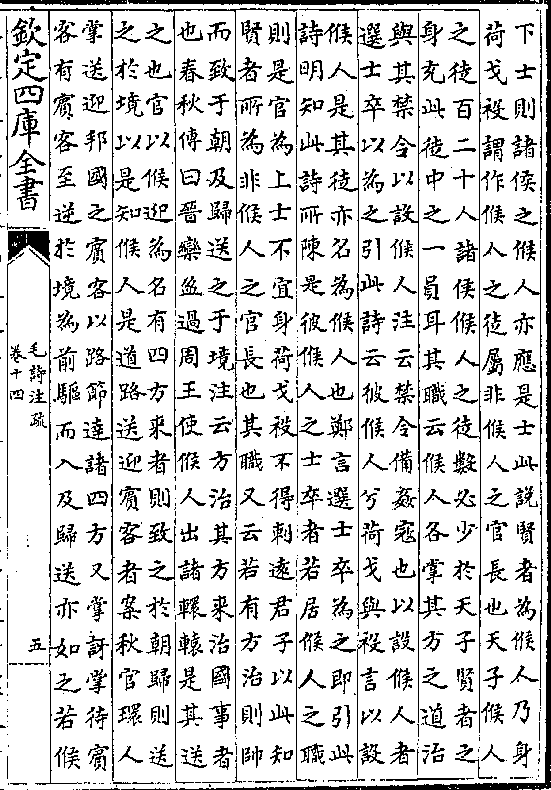 下士則諸侯之候人亦應是士此說賢者為候人乃身
荷戈祋謂作候人之徒屬非候人之官長也天子候人
之徒百二十人諸侯候人之徒數必少於天子賢者之
身充此徒中之一員耳其職云候人各掌其方之道治
與其禁令以設候人注云禁令備姦寇也以設候人者
選士卒以為之引此詩云彼候人兮荷戈與祋言以設
候人是其徒亦名為候人也鄭言選士卒為之即引此
詩明知此詩所陳是彼候人之士卒者若居候人之職
則是官為上士不宜身荷戈祋不得刺遠君子以此知
賢者所為非候人之官長也其職又云若有方治則帥
而致于朝及歸送之于境注云方治其方來治國事者
也春秋傳曰晉欒盈過周王使候人出諸轘轅是其送
之也官以候迎為名有四方來者則致之於朝歸則送
之於境以是知候人是道路送迎賓客者案秋官環人
掌送迎邦國之賓客以路節達諸四方又掌訝掌待賓
客有賓客至逆於境為前驅而入及歸送亦如之若候
欽定四庫全書
毛詩注疏
卷十四
五